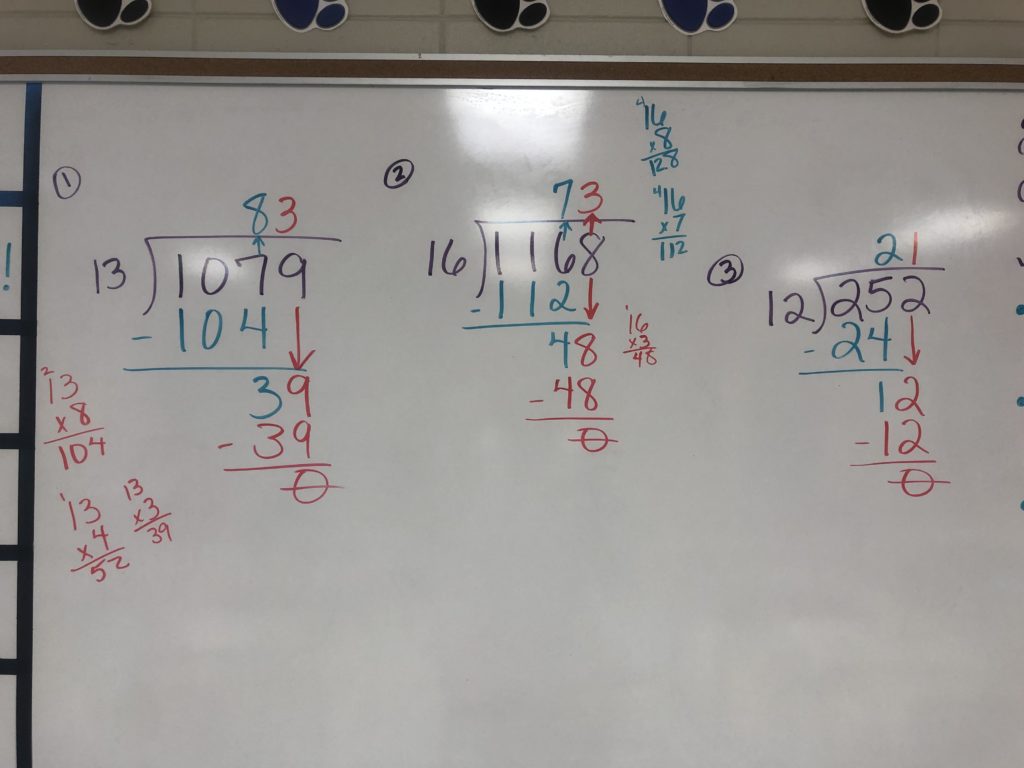 ①
83
13 1079
- 104
39
- 39
0
2
13
x 8
104
1
13
x 4
52
13
x 3
39
②
73
16 1168
- 112
48
- 48
0
4
16
x 8
128
4
16
x 7
112
1
16
x 3
48
③
21
12 252
- 24
12
- 12
0
!